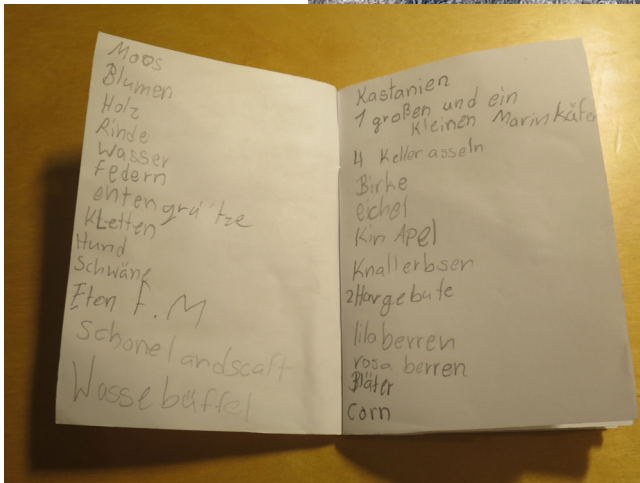 Moos
Blumen
Holz
Rinde
Wasser
Federn
entengrütze
Kletten
Hund
Schwäne
Eten F. M
Schone landscaft
Wassebüffel
Kastanien
1 großen und ein
kleinen Marinkäfer
4 Keller asseln
Birke
eichel
Kin Apel
Knallerbsen
2 Hargebute
lila berren
rosa berren
Bläter
Corn